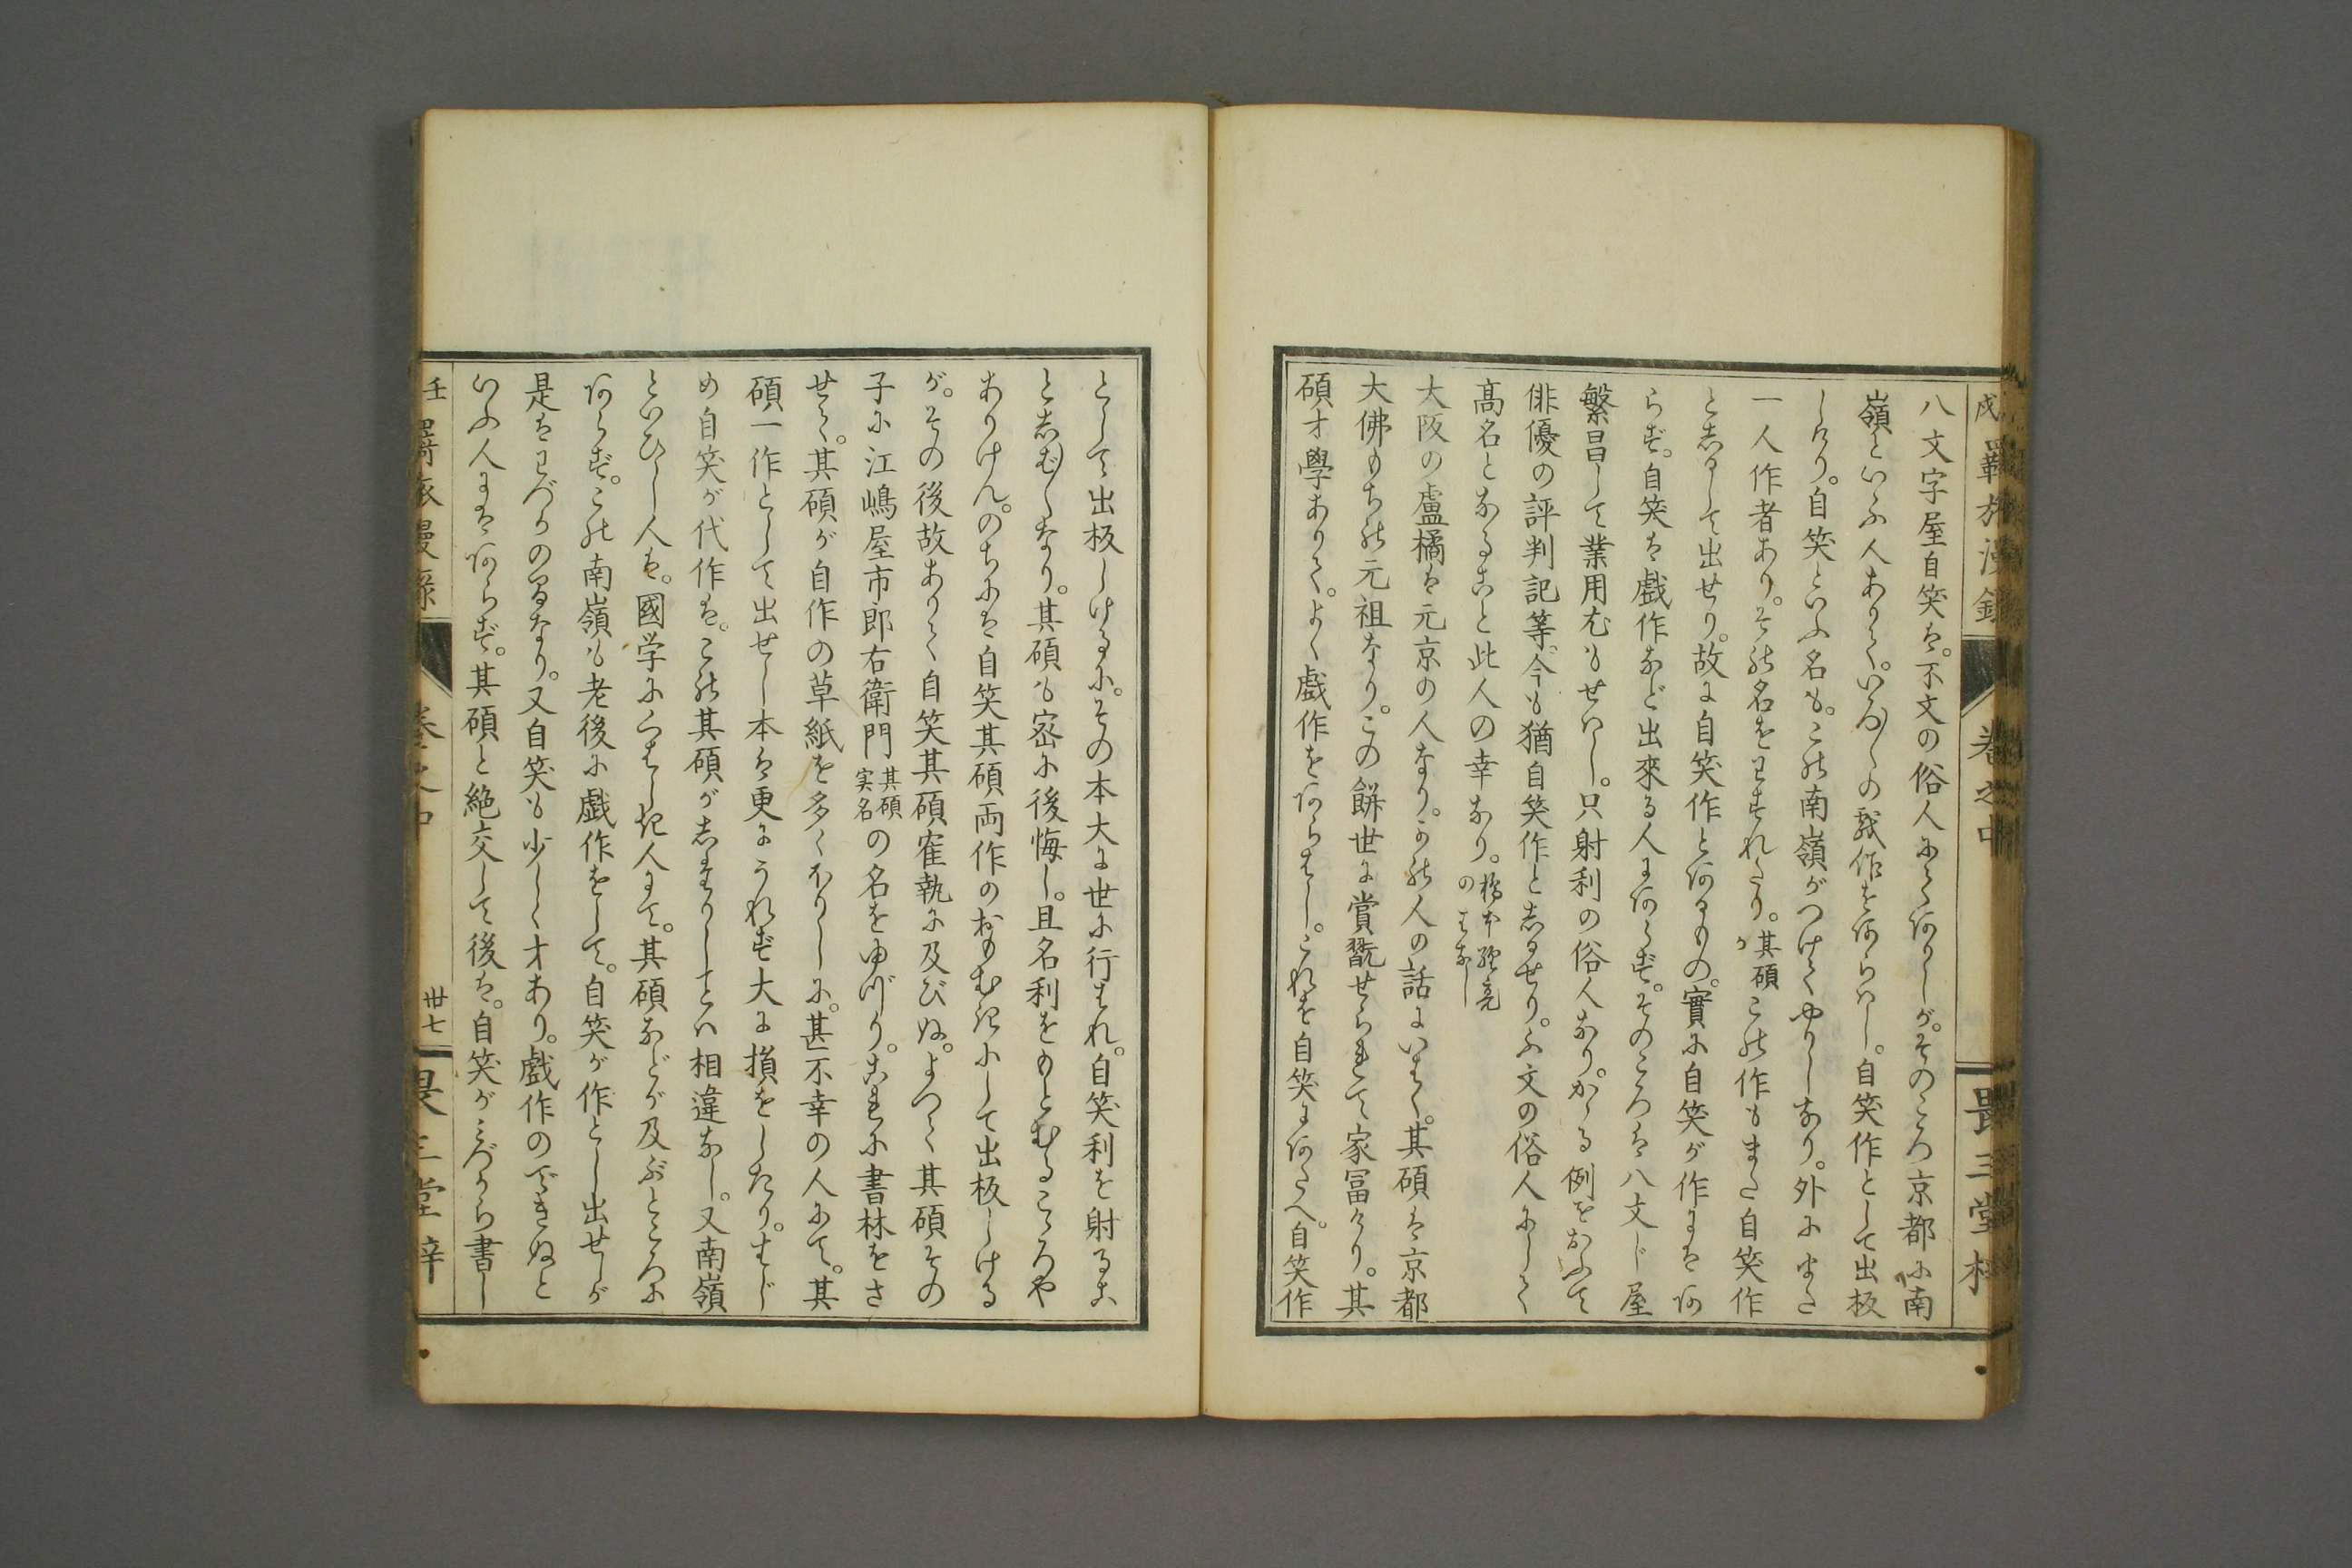 戌 羇旅漫録 卷之中 畏三堂梓
八文字屋自笑は。不文の俗人にてありしが。そのころ京都に南
嶺といふ人ありて。いろ〱の戯作をあらはし。自笑作として出板
しけり。自笑といふ名も。この南嶺がつけてやりしなり。外にまた
一人作者あり。その名をわすれたり。其碩か この作もまた自笑作
としるして出せり。故に自笑作とあるもの。實に自笑が作にはあ
らず。自笑は戯作など出來る人にあらず。そのころは八文じ屋
繁昌して業用尤もせはし。只射利の俗人なり。かゝる例をおふて
俳優の評判記等。今も猶自笑作としるせり。不文の俗人にして
髙名となること此人の幸なり。橋本經亮のはなし
大阪の盧橘は元京の人なり。この人の話にいはく。其碩は京都
大佛もちの元祖なり。この餅世に賞翫せられて家冨めり。其
碩才學ありて。よく戯作をあらはし。これを自笑にあたへ。自笑作
として出板しけるに。その本大に世に行はれ。自笑利を射るこ
としば〱なり。其碩も密に後悔し。且名利をもとむるこゝろや
ありけん。のちには自笑其碩両作のおもむきにして出板しける
が。その後故ありて自笑其碩確執に及びぬ。よつて其碩その
子に江嶋屋市郎右衛門 其碩実名 の名をゆづり。これに書林をさ
せて。其碩が自作の草紙を多くほりしに。甚不幸の人にて。其
碩一作として出せし本は更にうれず大に損をしたり。はじ
め自笑が代作は。この其碩がしたりしとは相違なし。又南嶺
といひし人は。國学にくはしき人にて。其碩などが及ぶところに
あらず。この南嶺も老後に戯作をして。自笑が作とし出せしが
是はわづかのるなり。又自笑も少しく才あり。戯作のできぬと
いふ人にはあらず。其碩と絶交して後は。自笑がみづから書し
壬 羇旅漫録 卷之中 丗七 畏三堂梓